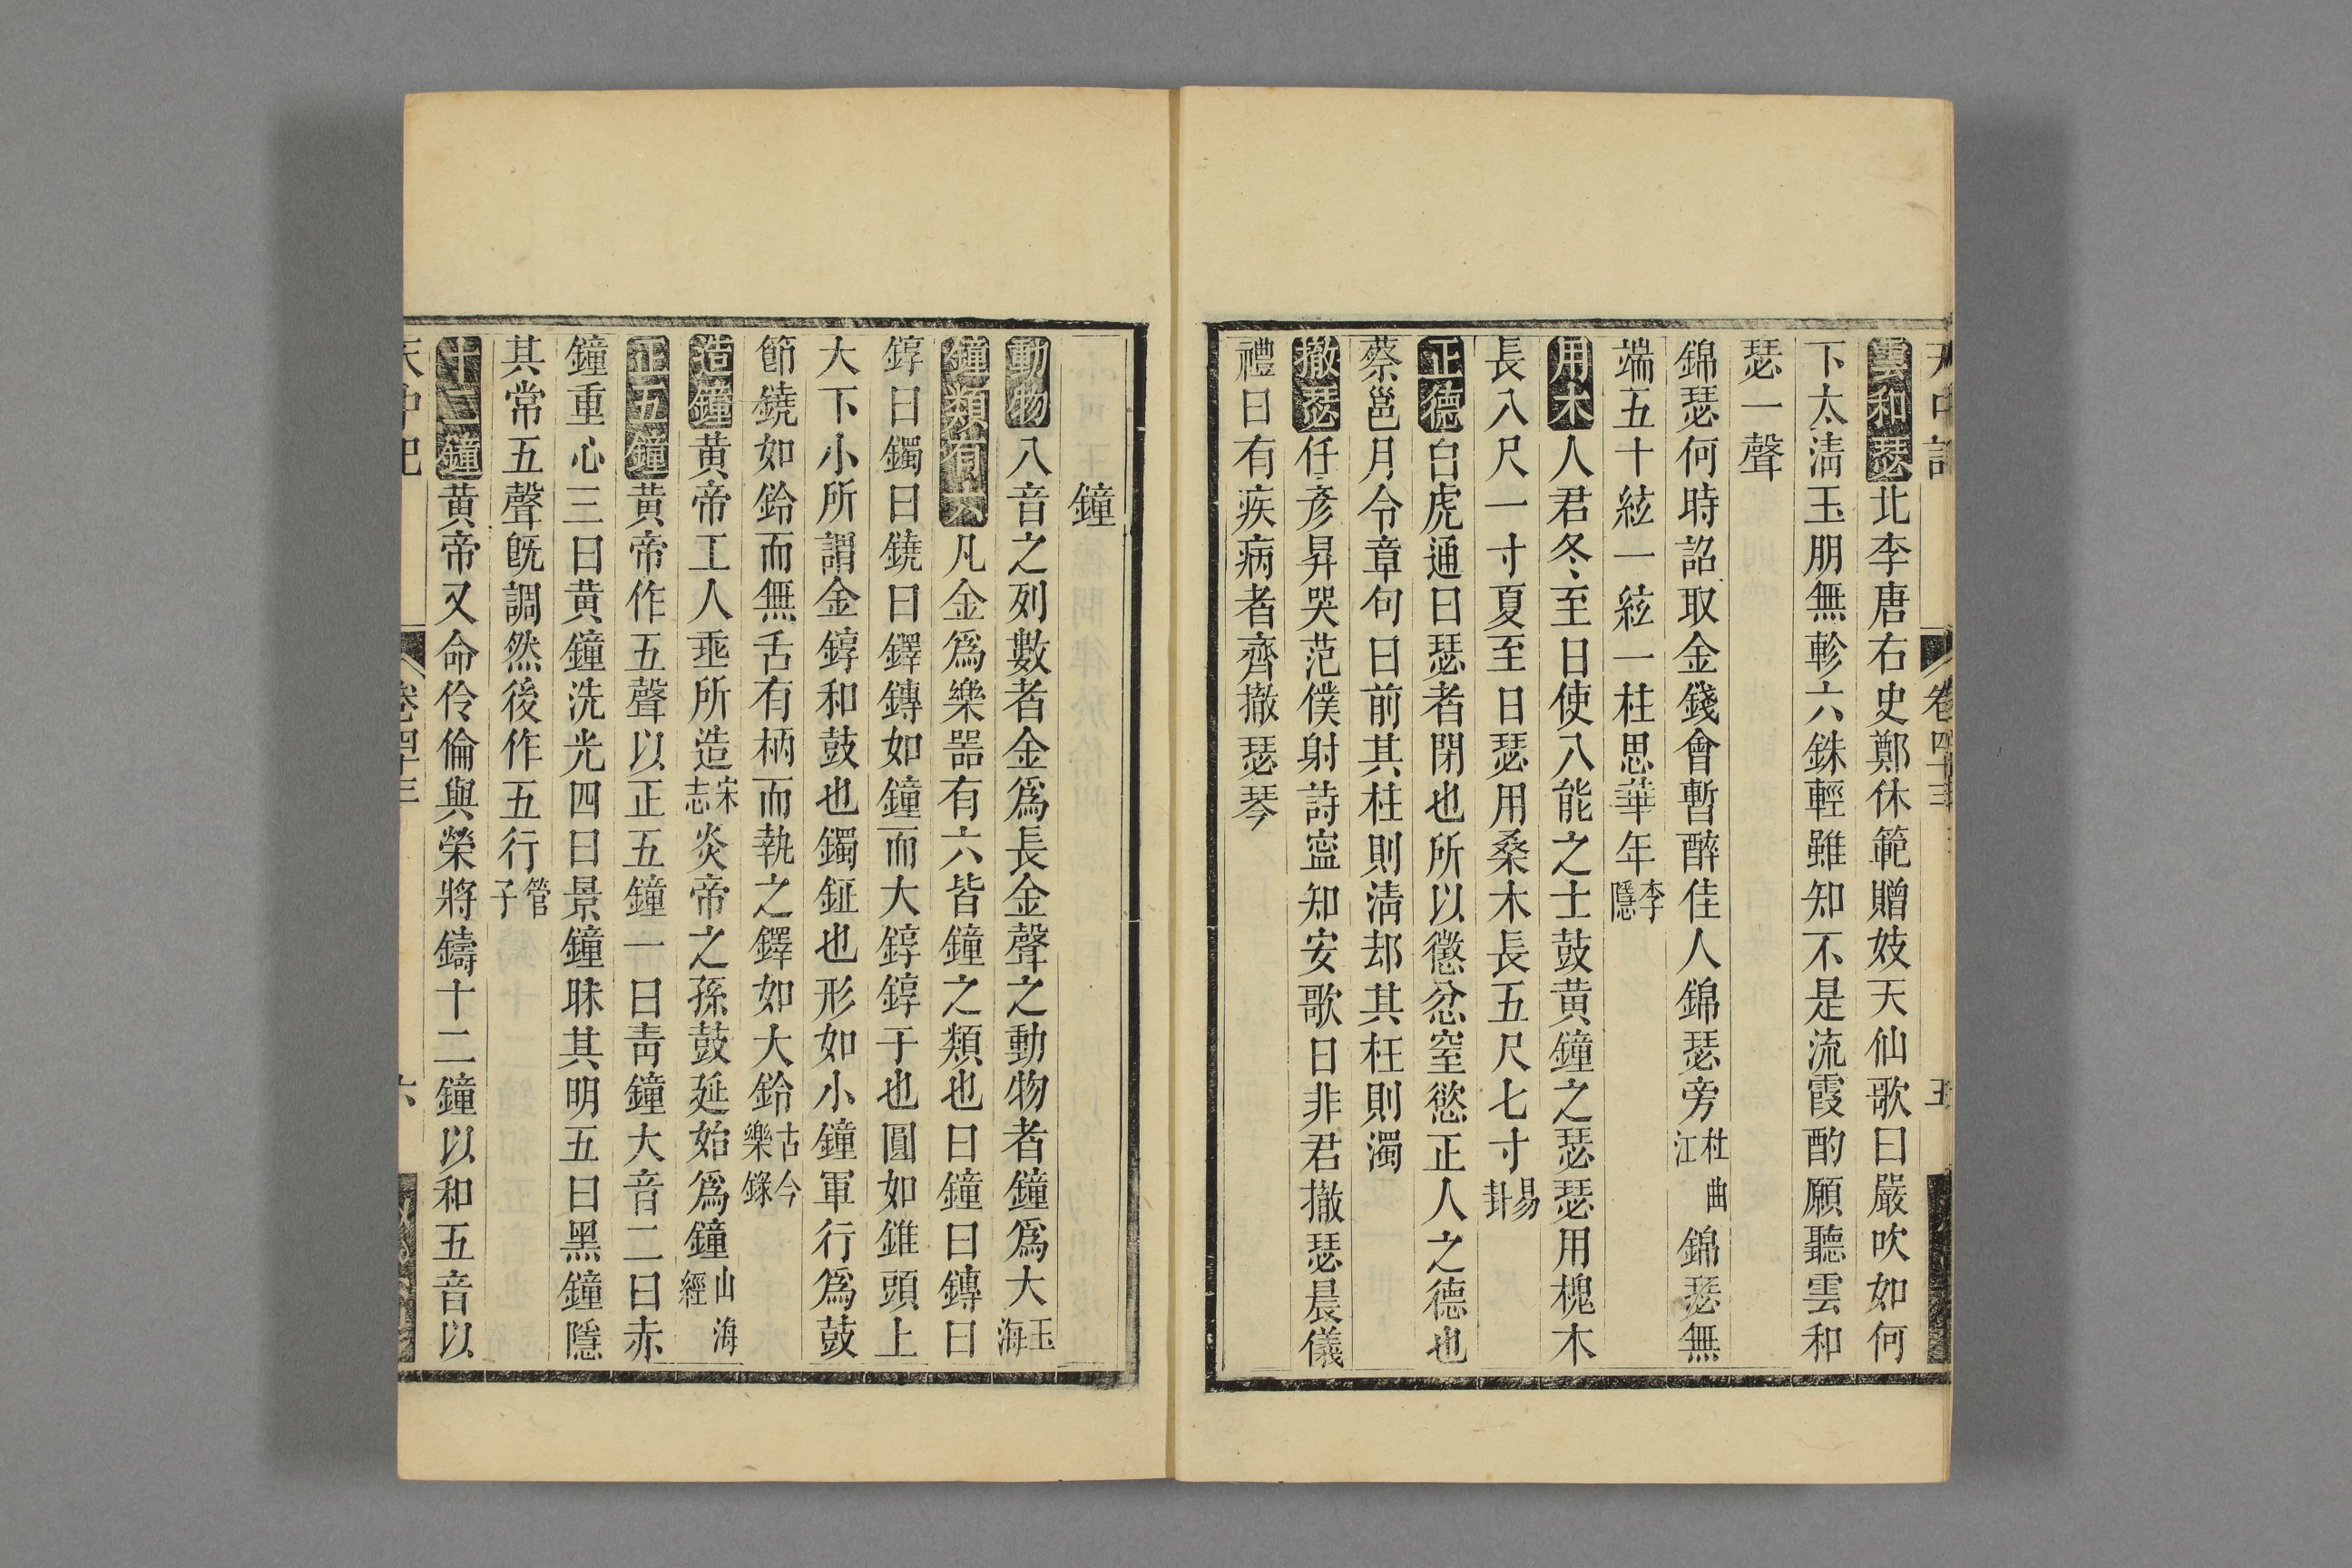 天中記 卷四十三 五
雲和瑟北李唐右史鄭休範贈妓天仙歌曰嚴吹如何
下太淸玉朋無軫六銖輕雖知不是流霞酌願聽雲和
瑟一聲
錦瑟何時詔取金錢會暫醉佳人錦瑟旁杜曲江錦瑟無
端五十絃一絃一柱思華年李隱
用木人君冬至日使八能之士鼓黄鐘之瑟瑟用槐木
長八尺一寸夏至日瑟用桑木長五尺七寸易卦
正德白虎通曰瑟者閉也所以懲忿窒慾正人之德也
蔡邕月令章句曰前其柱則淸却其枉則濁
撤瑟任彥昇哭范僕射詩寍知安歌日非君撤瑟晨儀
禮曰有疾病者齊撤瑟琴
鐘
動物八音之列數者金爲長金聲之動物者鐘爲大玉海
鐘類有六凡金爲樂噐有六皆鐘之類也曰鐘曰鎛曰
錞曰鐲曰鐃曰鐸鎛如鐘而大錞錞于也圓如錐頭上
大下小所謂金錞和鼓也鐲鉦也形如小鐘軍行爲鼓
節鐃如鈴而無舌有柄而執之鐸如大鈴古今樂錄
造鐘黄帝工人垂所造宋志炎帝之孫鼓延始爲鐘山海經
正五鐘黄帝作五聲以正五鐘一曰靑鐘大音二曰赤
鐘重心三曰黄鐘洗光四曰景鐘昧其明五曰黑鐘隱
其常五聲旣調然後作五行管子
十二鐘黄帝又命伶倫與榮將鑄十二鐘以和五音以
天中記 卷四十三 六